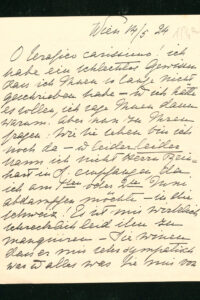 Wien 14/5 24
O Serafico carissimo! ich
habe ein schlechtes Gewissen
dass ich Ihnen so lange nicht
geschrieben habe – ich hätte
so vollen, ich sage Ihnen dann
warum. Aber nun zu Ihren
fragen: Wie Sie sehen bin ich
noch da – leider leider
kann ich nicht Herrn Rein-
hart in J. empfangen da
ich am 1ten oder 2ten Juni
abdampfen möchte – in die
Schweiz! Es ist mir wirklich
schrecklich leid ihn zu
manquiren – Sie wissen
dass er mir sehr sympatisch
war alles was Sie mir von